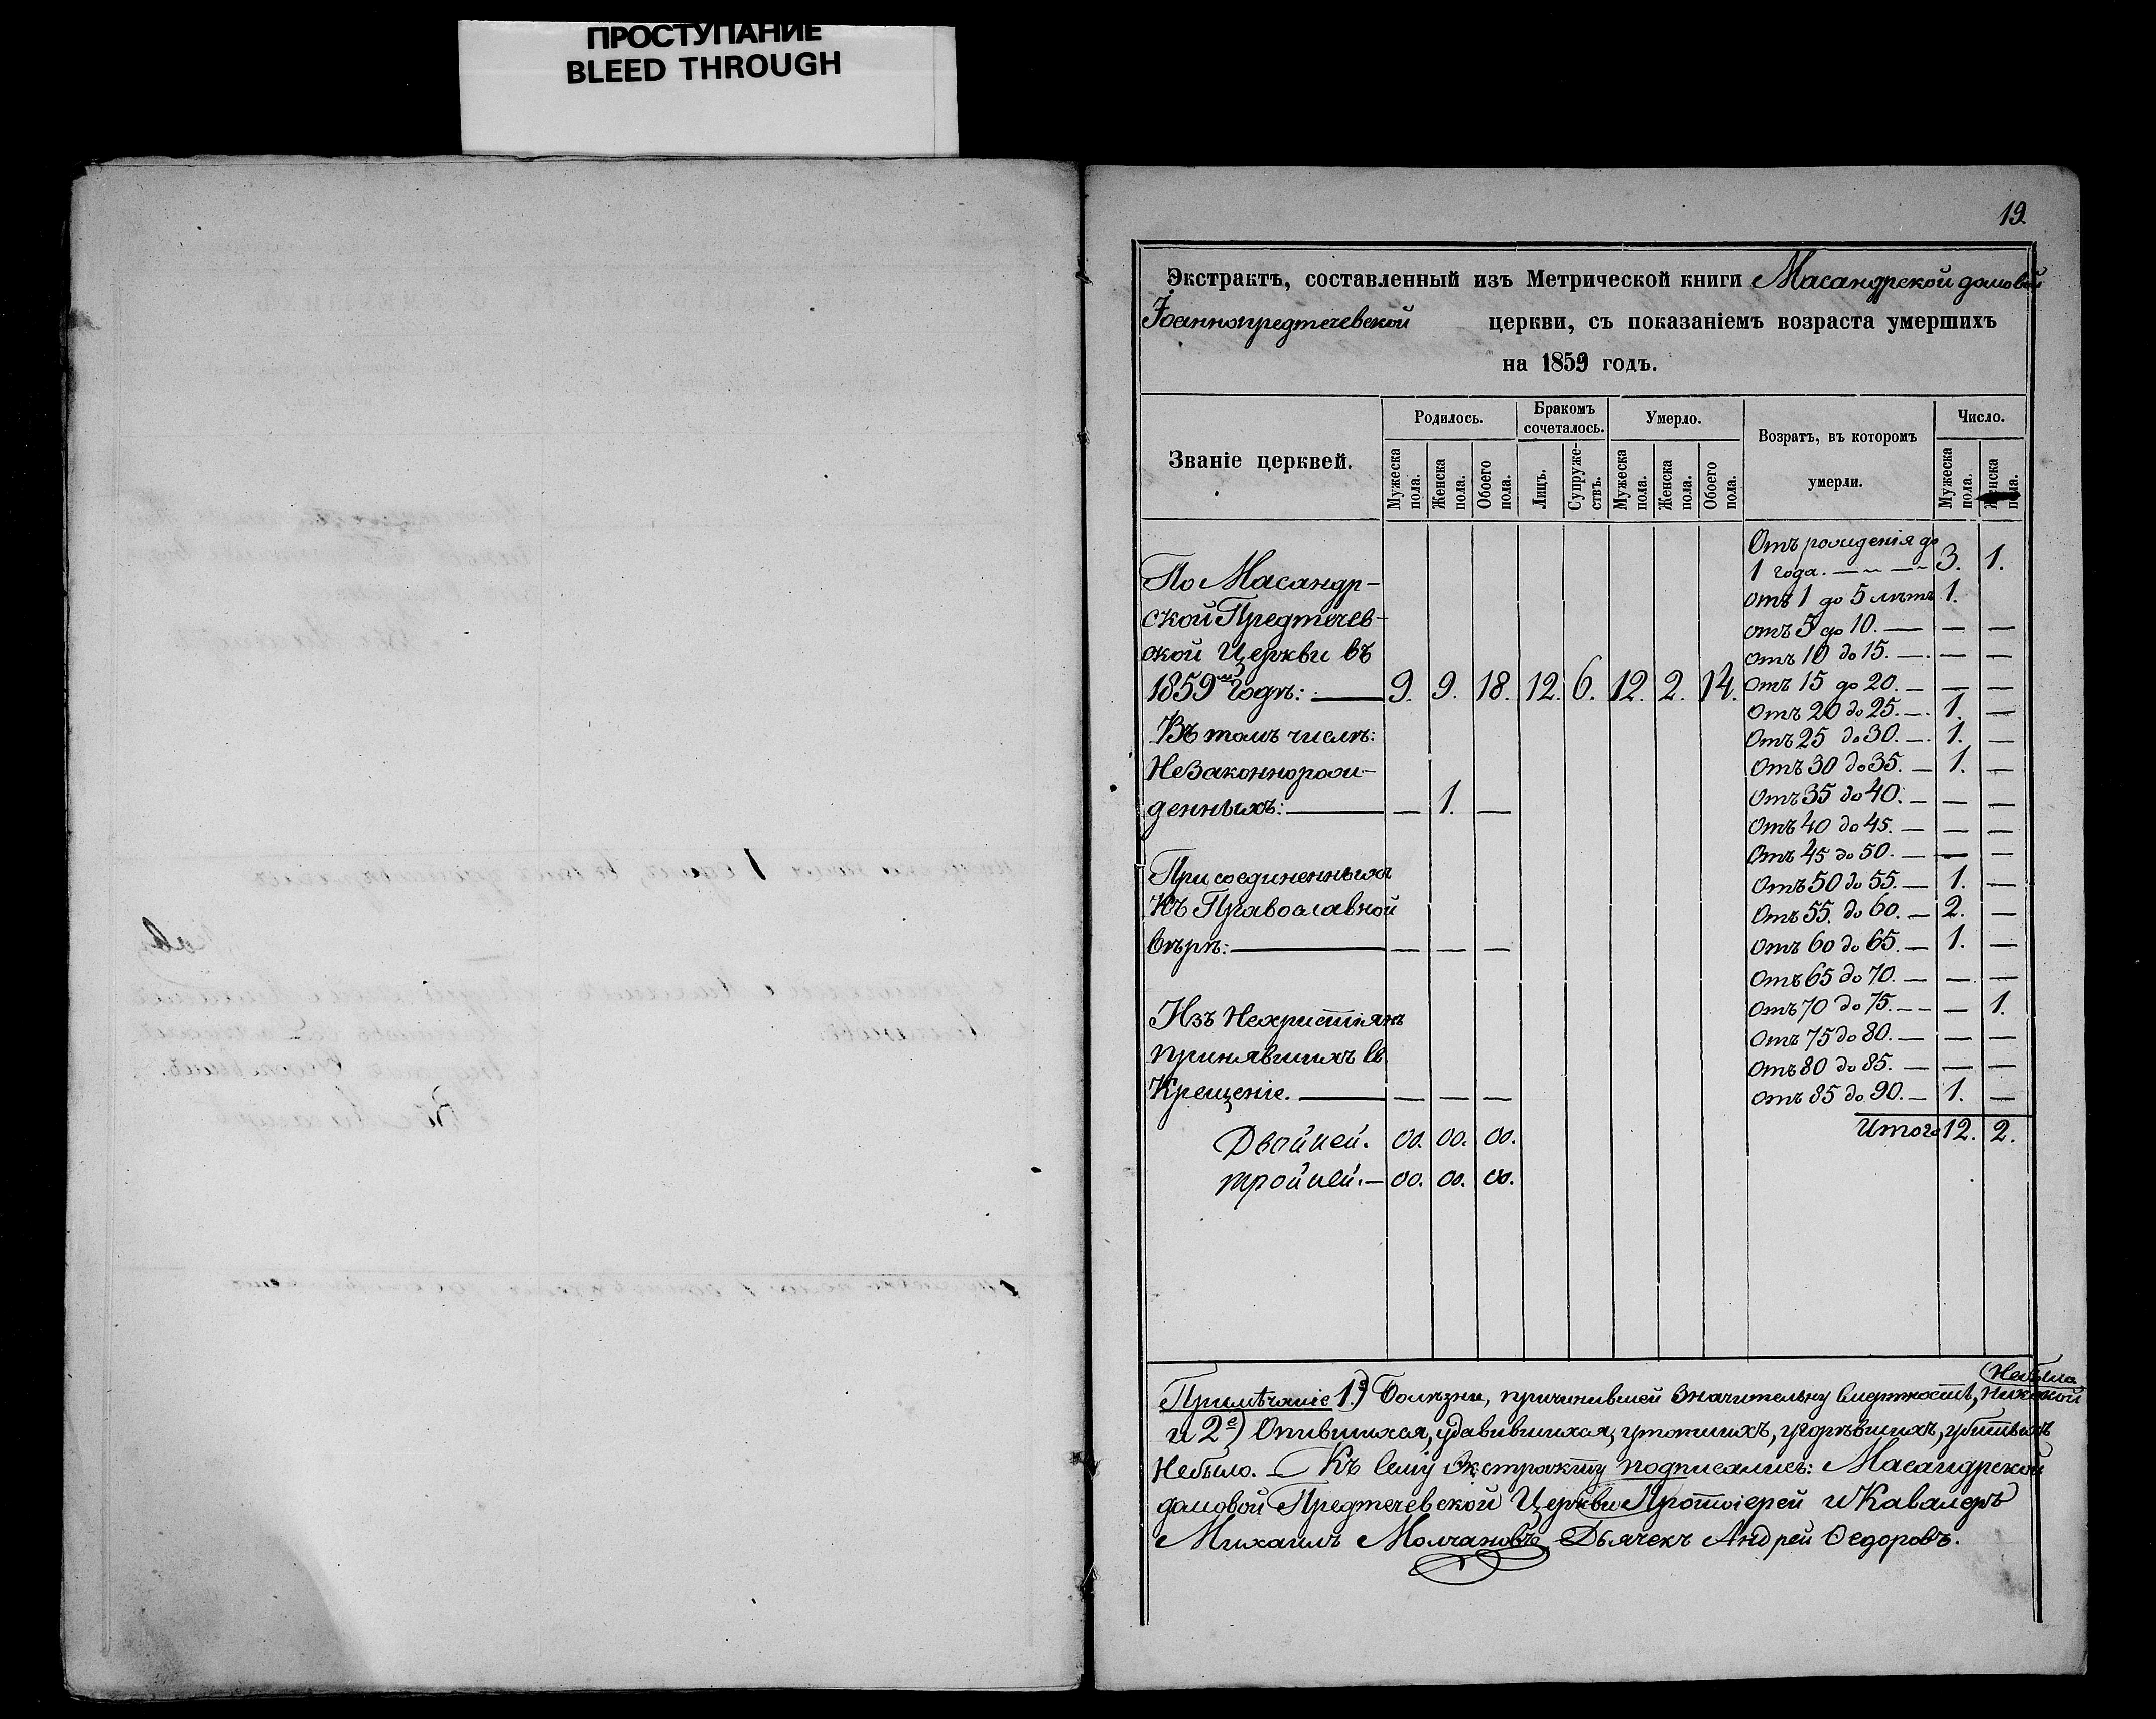 ПРОСТУПАНИЕ
BLEED THROUGH
19.
Экстрактъ, составленный изъ Метрической книги Масандрской домовой
Іоаннопредтечевской церкви, съ показаніемъ возраста умершихъ
на 1859 годъ.
Званіе церквей.
Родилось.
Бракомъ сочеталось.
Умерло.
Возратъ, въ которомъ умерли.
Число.
Мужеска пола.
Женска пола.
Обоего пола.
Лицъ.
Супружествъ.
Мужеска пола.
Женска пола.
Обоего пола.
Мужеска пола.
Женска пола.
По Масандр-
ской Предтечев-
ской Церкви въ
1859м годѣ: — 9. 9. 18. 12. 6. 12. 2. 14.
Въ томъ числѣ:
Незаконнорож-
денныхъ: — — 1. —
Присоединенныхъ
Къ Православной
вѣрѣ: — — — —
Изъ Нехристіянъ
принявшихъ св.
Крещеніе. — — — —
Двойней. 00. 00. 00.
тройней. — 00. 00. 00.
Отъ рожденія до
1 года. — 3. 1.
отъ 1 до 5 лѣтъ 1.
отъ 5 до 10. — — —
отъ 10 до 15. — — —
Отъ 15 до 20. — — —
Отъ 20 до 25. — 1. —
Отъ 25 до 30. — 1. —
Отъ 30 до 35. — 1. —
Отъ 35 до 40. — — —
Отъ 40 до 45. — — —
Отъ 45 до 50. — — —
Отъ 50 до 55. — 1. —
Отъ 55. до 60. — 2. —
Отъ 60 до 65. — 1. —
Отъ 65 до 70. — — —
Отъ 70 до 75. — — 1.
Отъ 75 до 80. — — —
Отъ 80 до 85. — — —
Отъ 85 до 90. — 1. —
Итого 12. 2.
Небыло
Примѣчаніе 1е) Болѣзни, причинившей значительну смертность, никакой
и 2е) Опившихся, удавившихся, утопшихъ, угорѣвшихъ, убитыхъ
Небыло. — Къ сему Экстракту подписались: Масандрской
домовой Предтечевской Церкви Протоіерей и Кавалеръ
Михаилъ Молчановъ, Дьячекъ Андрей Ѳедоровъ.